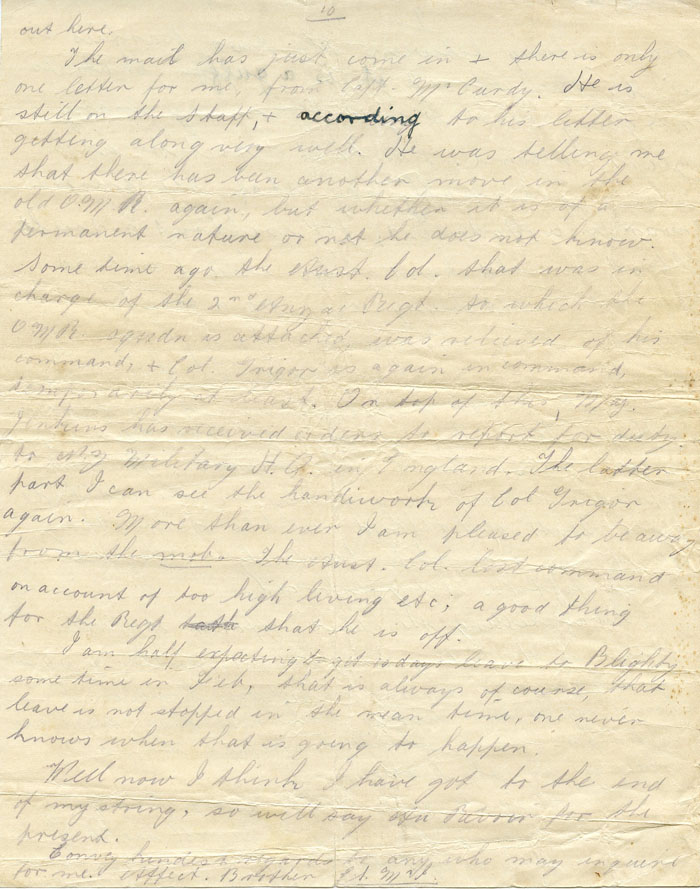 10
out here.
The mail has just come in + there is only
one letter for me, from Capt. McCurdy. He is
still on the staff, + according to his letter
getting along very well. He was telling me
that there has been another move in the
old O M R. again, but whether it is of a
permanent nature or not he does not know.
Some time ago the Aust. Col. that was in
charge of the 2nd Anzac Regt. to which the
O M R sqecdn is attached was relieved of his
command, + Col. Grigor is again in command,
temporarily at least. On top of this, Maj.
Jenkins has received orders to report for duty
to N Z Military H. Q. in England. The latter
part I can see the handiwork of Col Grigor
again. More than ever I am pleased to be away
from the mob. The Aust. Col. lost command
on account of too high living etc; a good thing
for the Regt that he is off.
I am half expecting to get 10 days leave to Blighty
some time in Feb, that is always of course, that
leave is not stopped in the mean time, one never
knows when that is going to happen.
Well now I think I have got to the end
of my string, so will say Au Revoir for the
present.
Convey kindest regards to any who may inquire
for me. Affect. Brother